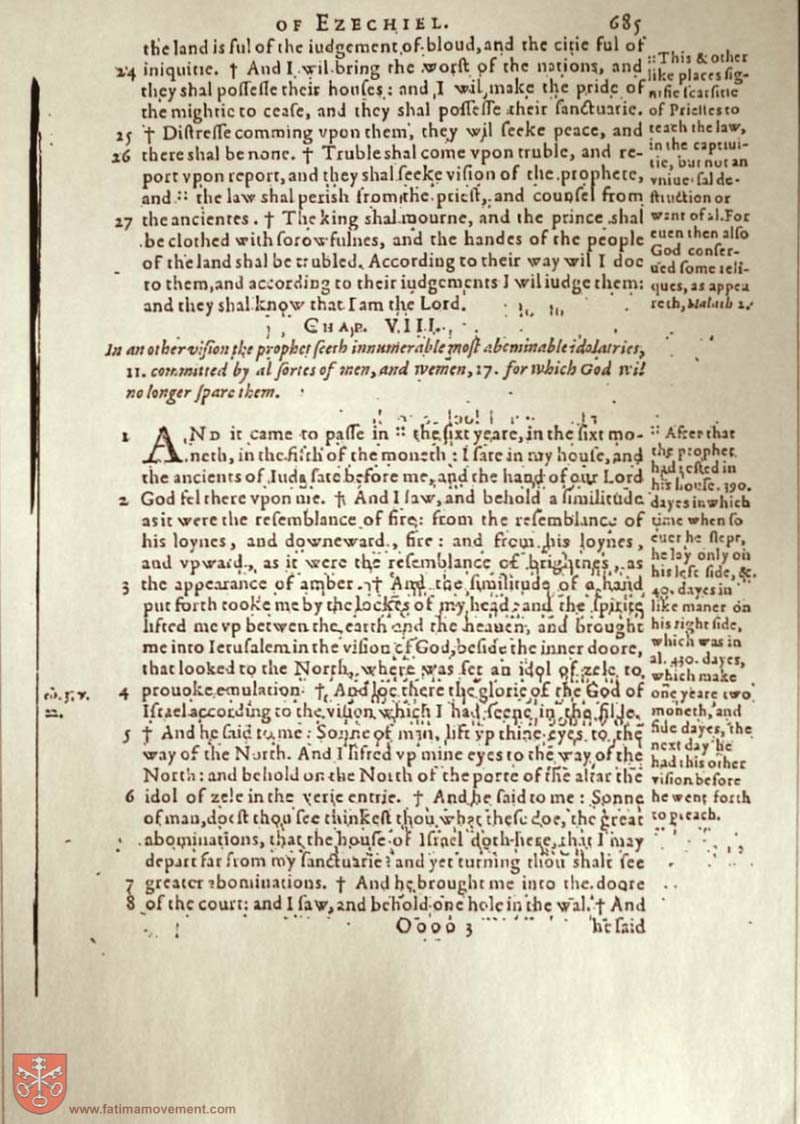 OF EZECHIEL. 685
the land is ful of the iudgement of bloud, and the citie ful of
24 iniquitie. † And I wil bring the worſt of the nations, and
they shal poſſeſſe their houſes: and I wil make the pride of
the mightie to ceaſe, and they shal poſſeſſe their ſanctuarie.
25 † Diſtreſſe comming vpon them, they wil ſeeke peace, and
26 there shal be none. † Truble shal come vpon truble, and re-
port vpon report, and they shal ſeeke viſion of the prophete,
and :: the law shal perish from the prieſt, and counſel from
27 the ancientes. † The king shal mourne, and the prince shal
be clothed with ſorowfulnes, and the handes of the people
of the land shal be trubled. According to their way wil I doe
to them, and according to their iudgements I wil iudge them:
and they shal know that I am the Lord.
:: This & other
like places ſig-
nifie ſcarſitie
of Prieſtes to
teach the law,
in the captiui-
tie, but not an
vniuerſal de-
ſtruction or
want of al. For
euen then alſo
God conſer-
ued ſome reli-
ques, as appea
reth, Malach 2.
CHAP. VIII.
In an other viſion the prophet ſeeth innumerable moſt abominable idolatries,
11. committed by al ſortes of men, and wemen, 17. for which God wil
no longer ſpare them.
1 AND it came to paſſe in :: the ſixt yeare, in the ſixt mo-
neth, in the fifth of the moneth: I ſate in my houſe, and
the ancients of Iuda ſate before me, and the hand of our Lord
2 God fel there vpon me. † And I ſaw, and behold a ſimilitude
as it were the reſemblance of fire: from the reſemblance of
his loynes, and downeward, fire: and from his loynes,
and vpward, as it were the reſemblance of brightnes, as
3 the appearance of amber. † And the ſimilitude of a hand
put forth tooke me by the lockes of my head: and the ſpirite
lifted me vp betwen the earth and the heauen, and brought
me into Ieruſalem in the viſion of God, beſide the inner doore,
that looked to the North, where was ſet an idol of zele to
4 prouoke emulation. † And loe there the glorie of the God of
Iſrael according to the viſion which I had ſeene in the filde.
5 † And he ſaid to me: Sonne of man, lift vp thine eyes to the
way of the North. And I lifted vp mine eyes to the way of the
North: and behold on the North of the porte of the altar the
6 idol of zele in the verie entrie. † And he ſaid to me: Sonne
of man, doeſt thou ſee thinkeſt thou what theſe doe, the great
abominations, that the houſe of Iſrael doth here, that I may
depart far from my ſanctuarie? and yet turning thou shalt ſee
7 greater abominations. † And he brought me into the doore
8 of the court: and I ſaw, and behold one hole in the wal. † And
:: After that
the prophet
had reſted in
his houſe. 390.
dayes in which
time when ſo
euer he ſlept,
he lay only on
his left ſide, &.
40. dayes in
like maner on
his right ſide,
which was in
al. 430. dayes,
which make
one yeare two
moneth, and
fide dayes, the
next day he
had this other
viſion before
he went forth
to preach.
22.
Oooo 3 he ſaid
www.fatimamovement.com